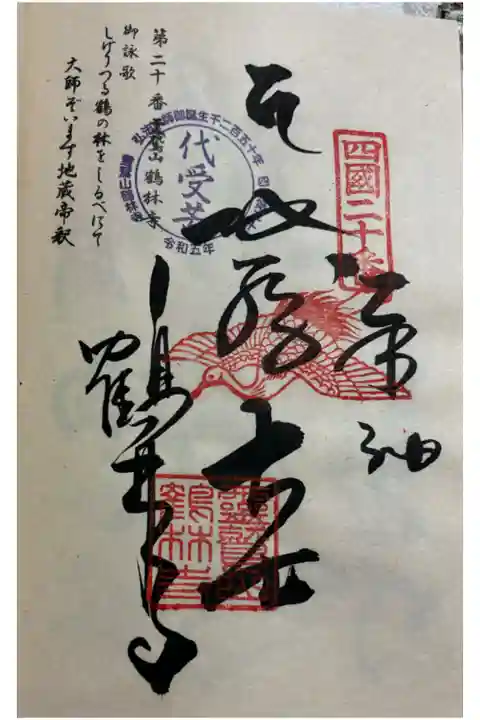 四國二十番
奉納
地蔵大士
鶴林寺
代受苦
弘法大師御誕生千二百五十年
令和五年
霊鷲山鶴林寺
第二十番霊鷲山鶴林寺
御詠歌
しげりつる鶴の林をしるべにて
大師ぞいます地蔵帝釈